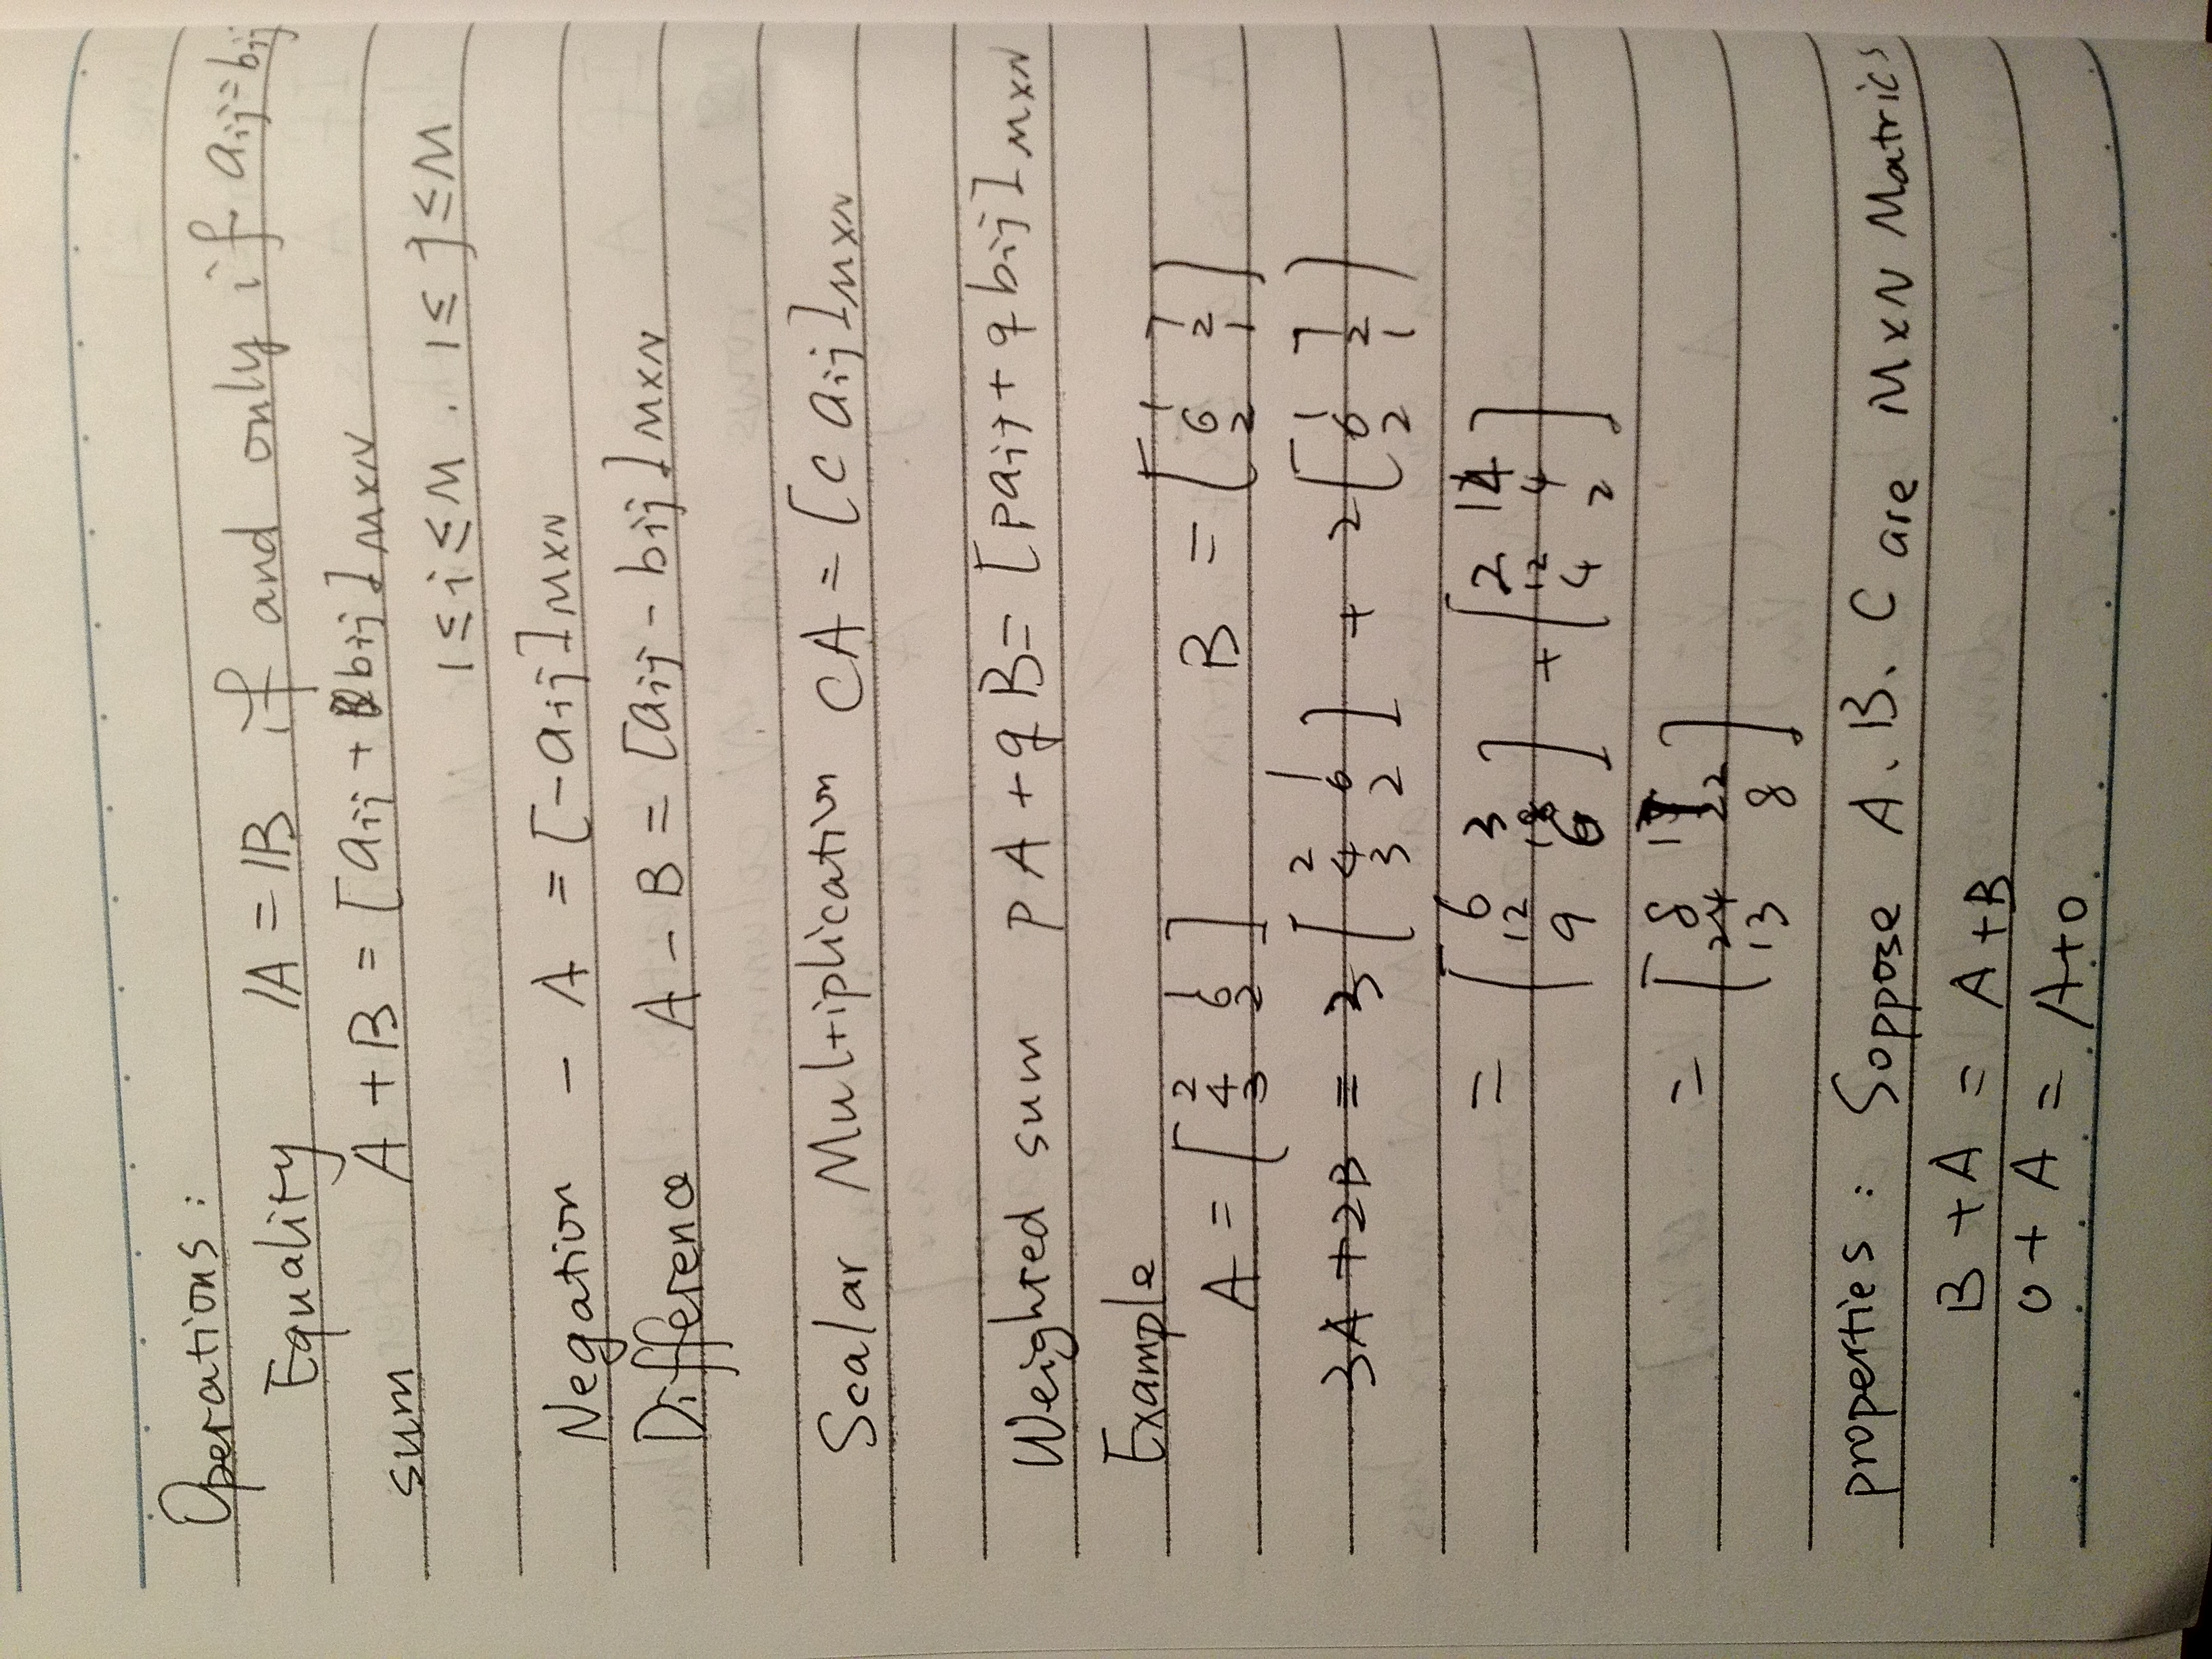 Operations:
Equality |A = |B if and only if aij=bij
sum A + B = [aij + bij]MXN
1≤i≤M . 1≤j≤M
Negation - A = [-aij]MXN
Difference A - B = [aij - bij]MXN
Scalar Multiplication CA = [c aij]MXN
Weighted sum P A + q B = [paij + q bij]MXN
Example
A = [ 2 1
4 6
3 2 ] B = [ 1 7
6 2
2 1 ]
3A + 2B = 3 [ 2 1
4 6
3 2 ] + 2 [ 1 7
6 2
2 1 ]
= [ 6 3
12 18
9 6 ] + [ 2 14
12 4
4 2 ]
= [ 8 17
24 22
13 8 ]
properties: Soppose A. B. C are MXN Matrics
B + A = A + B
0 + A = A+0